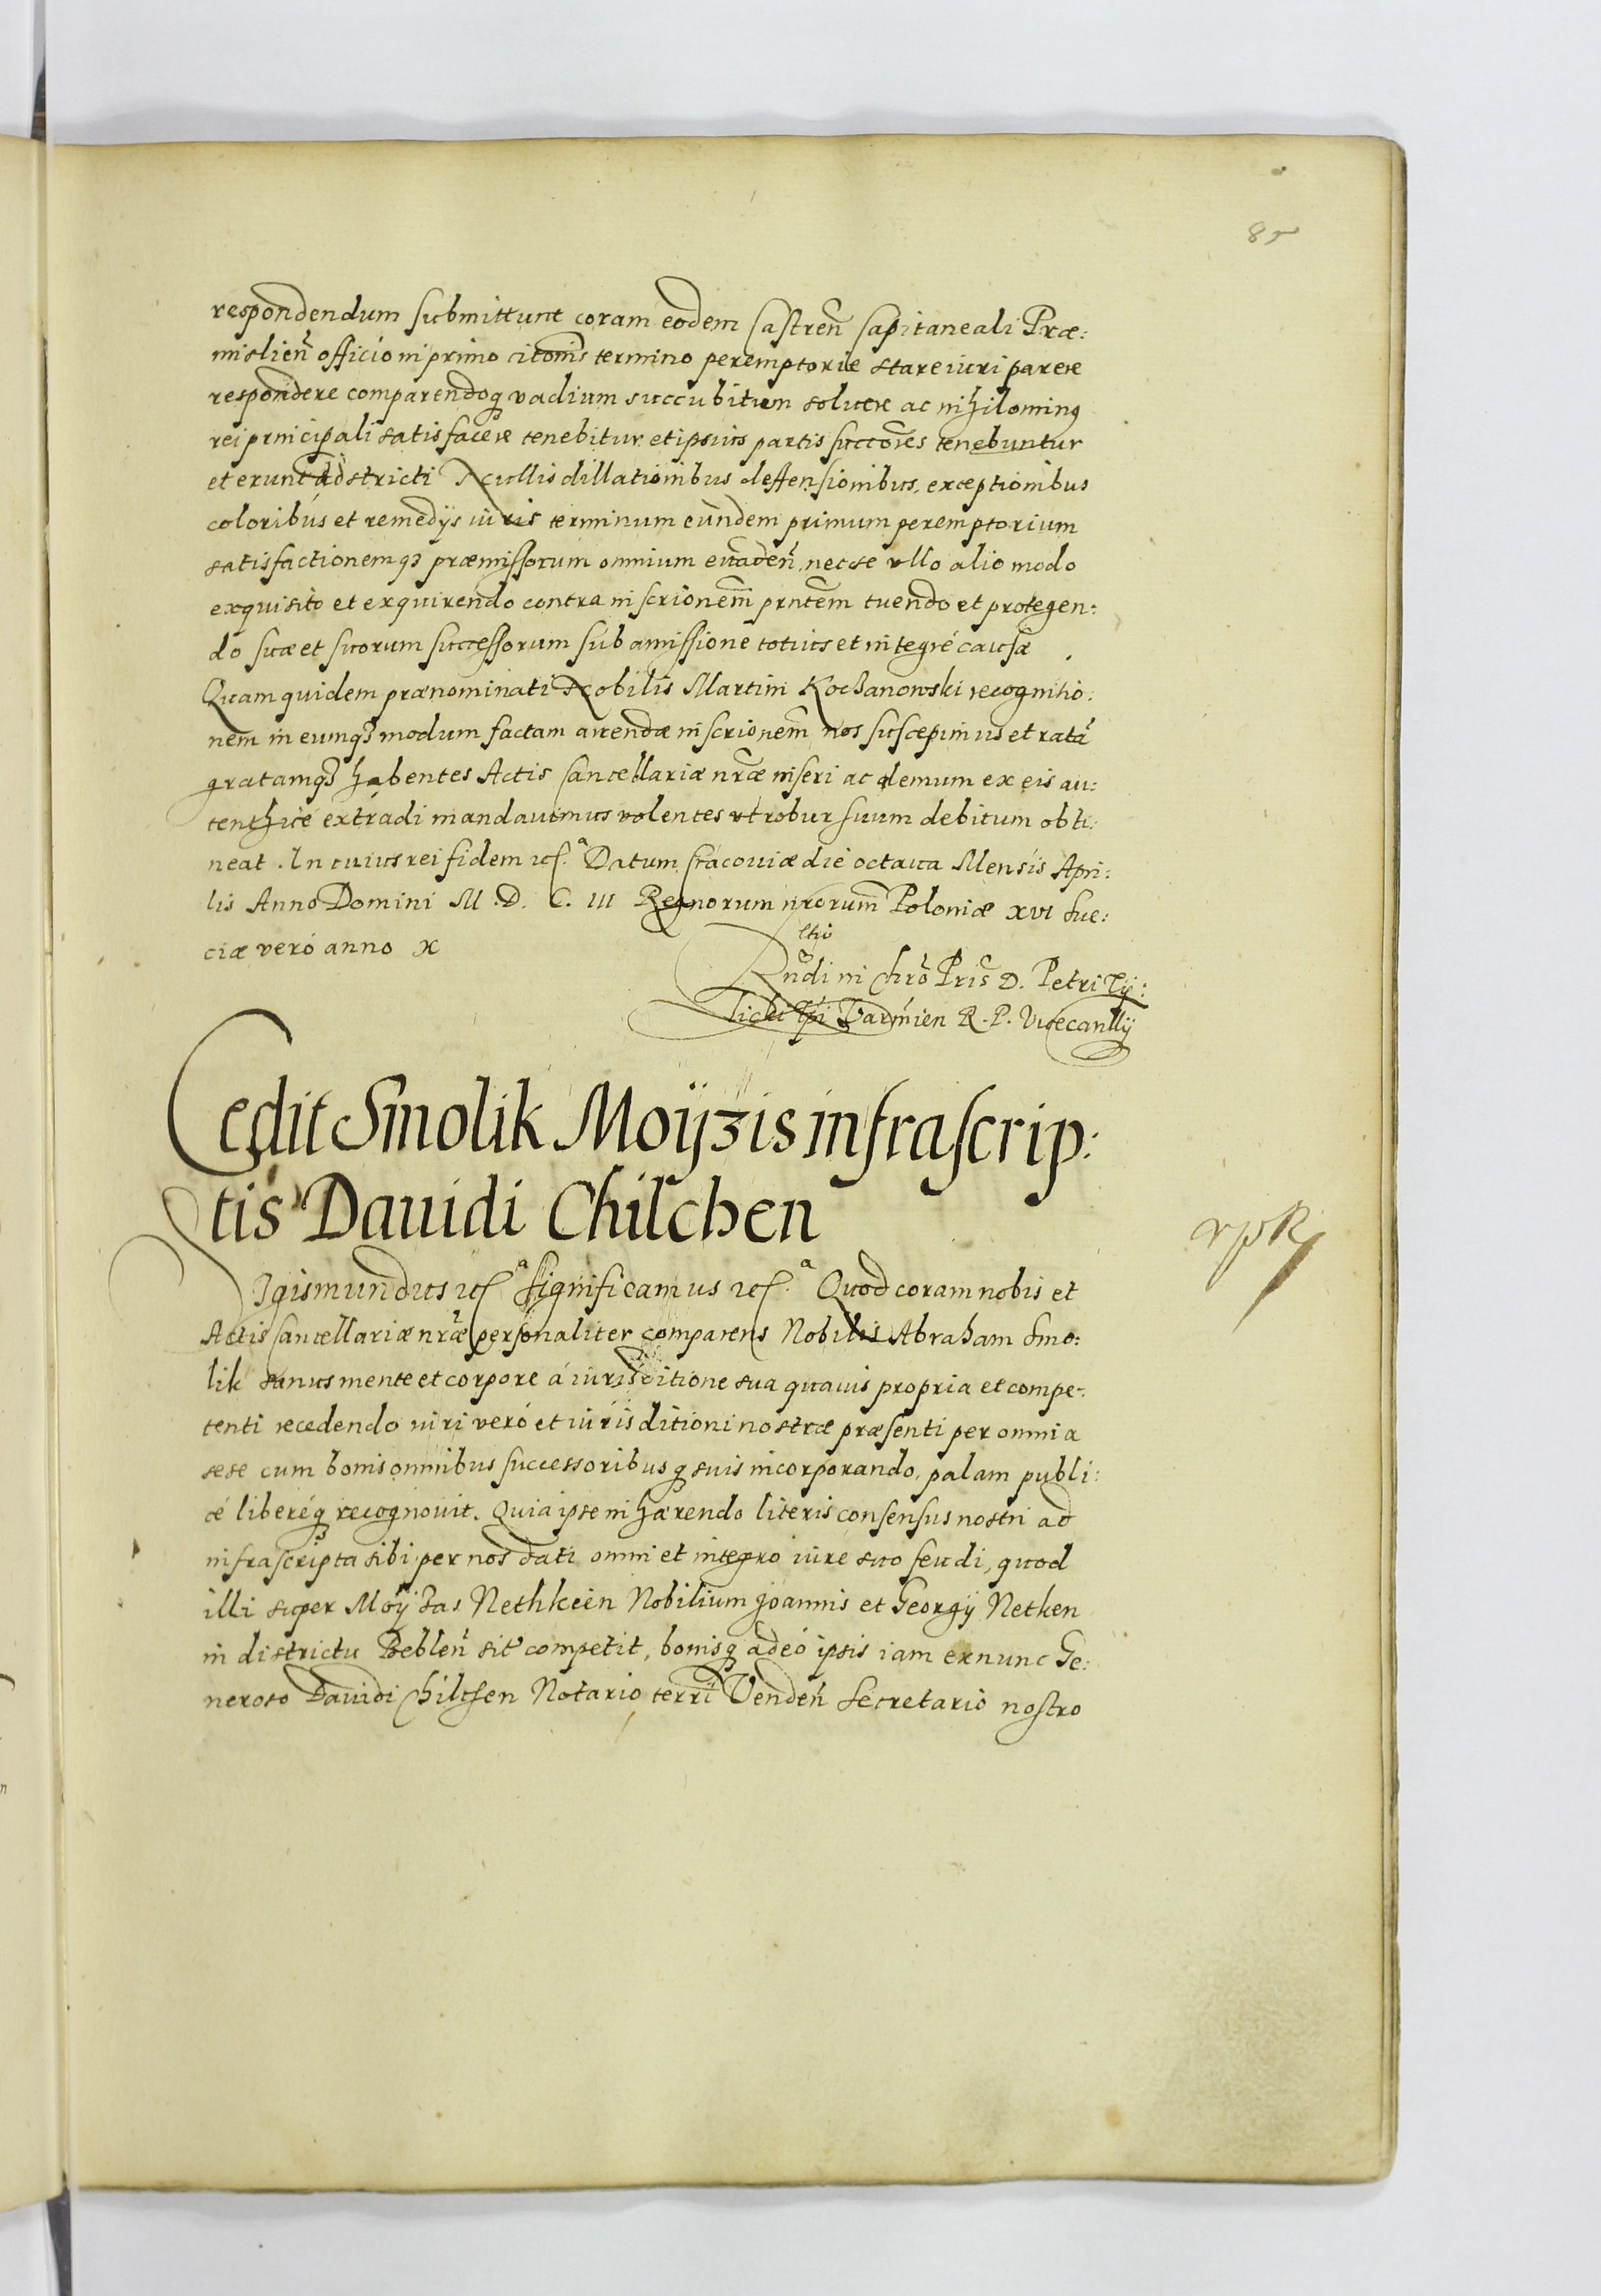 85
respondendum submittunt coram eodem Castreñ Capitaneali Præ:
misliẽn officio in primo citonis termino peremptorie stare iuri parere
respondere comparendoq vadium succubitum soluere ac nihilominq
rei principali satisfacere tenebitur et ipsius partis succores tenebuntur
et erunt adstricti Nullis dillationibus deffensionibus, exceptionibus
coloribus et remedijs iuris terminum eundem primum peremptorium
satisfactionemqз præmissorum omnium euadeñ, nec se vllo alio modo
exquisito et exquirendo contra inscrionem prntem tuendo et protegen:
do suæ et suorum successorum sub amissione totius et integre causæ
Quam quidem prænominati Nobilis Martini Kochanowski recognitio:
nem in eumqз modum factam arendæ inscrionem nos suscepimus et ratã
gratamqз habentes Actis Cancellariæ nræ inseri ac demum ex eis au:
tenthice extradi mandauimus volentes vt robur suum debitum obti:
neat. In cuius rei fidem etc.ª Datum Cracouiæ die octaua Mensis Apri:
lis Anno Domini M.D.C.III Regnorum nrorum Poloniæ XVI Sue:
ciæ vero anno X
Rndi in Chro Pris D. Petri Tÿ:
licki Epi Varmien R.P. Vicecanllÿ
Cedit Smolik Moÿzis infrascrip:
tis Dauidi Chilchen
Sigismundus etc.ª Significamus etc.ª Quod coram nobis et
Actis Cancellariæ nræ personaliter comparens Nobilis Abraham Smo:
lik sanus mente et corpore á iurisditione sua quauis propria et compe:
tenti recedendo iuri veró et iurisditioni nostræ præsenti per omnia
sese cum bonis omnibus successoribusq suis incorporando, palam publi:
cé liberéq recognouit. Quia ipse inhærendo literis consensus nostri ad
infrascripta sibi per nos dati omni et integro iure suo feudi, quod
illi super Moÿzas Nethkein Nobilium Joannis et Georgÿ Netken
in districtu Zebleñ sit competit, bonisq adeó ipsis iam exnunc Ge:
neroso Dauidi Chilchen Notario terri Vendeñ Secretario nostro